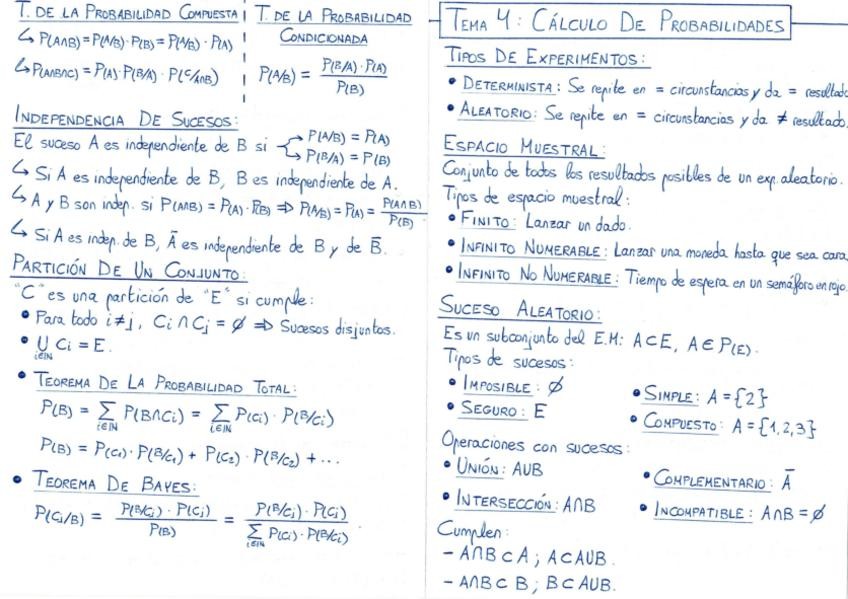 T. DE LA PROBABILIDAD COMPUESTA
↳ P(A∩B) = P(A/B) · P(B) = P(B/A) · P(A)
↳ P(A∩B∩C) = P(A) · P(B/A) · P(C/A∩B)
T. DE LA PROBABILIDAD
CONDICIONADA
P(A/B) = P(B/A) · P(A) / P(B)
INDEPENDENCIA DE SUCESOS:
El suceso A es independiente de B si → P(A/B) = P(A)
→ P(B/A) = P(B)
↳ Si A es independiente de B, B es independiente de A.
↳ A y B son indep. si P(A∩B) = P(A) · P(B) ⇒ P(A/B) = P(A) = P(A∩B) / P(B)
↳ Si A es indep. de B, A̅ es independiente de B y de B̅.
PARTICIÓN DE UN CONJUNTO:
"C" es una partición de "E" si cumple:
• Para todo i ≠ j, Ci ∩ Cj = ∅ ⇒ Sucesos disjuntos.
• ⋃ i∈ℕ Ci = E.
• TEOREMA DE LA PROBABILIDAD TOTAL:
P(B) = ∑ i∈ℕ P(B∩Ci) = ∑ i∈ℕ P(Ci) · P(B/Ci)
P(B) = P(C1) · P(B/C1) + P(C2) · P(B/C2) + ...
• TEOREMA DE BAYES:
P(Ci/B) = P(B/Ci) · P(Ci) / P(B) = P(B/Ci) · P(Ci) / ∑ i∈ℕ P(Ci) · P(B/Ci)
TEMA 4: CÁLCULO DE PROBABILIDADES
TIPOS DE EXPERIMENTOS:
• DETERMINISTA: Se repite en = circunstancias y da = resultado
• ALEATORIO: Se repite en = circunstancias y da ≠ resultado.
ESPACIO MUESTRAL:
Conjunto de todos los resultados posibles de un exp. aleatorio.
Tipos de espacio muestral:
• FINITO: Lanzar un dado.
• INFINITO NUMERABLE: Lanzar una moneda hasta que sea cara.
• INFINITO NO NUMERABLE: Tiempo de espera en un semáforo en rojo.
SUCESO ALEATORIO:
Es un subconjunto del E.M: A⊂E, A∈P(E).
Tipos de sucesos:
• IMPOSIBLE: ∅
• SEGURO: E
• SIMPLE: A = {2}
• COMPUESTO: A = {1,2,3}
Operaciones con sucesos:
• UNIÓN: A∪B
• INTERSECCIÓN: A∩B
• COMPLEMENTARIO: A̅
• INCOMPATIBLE: A∩B = ∅
Cumplen:
- A∩B⊂A ; A⊂A∪B.
- A∩B⊂B ; B⊂A∪B.